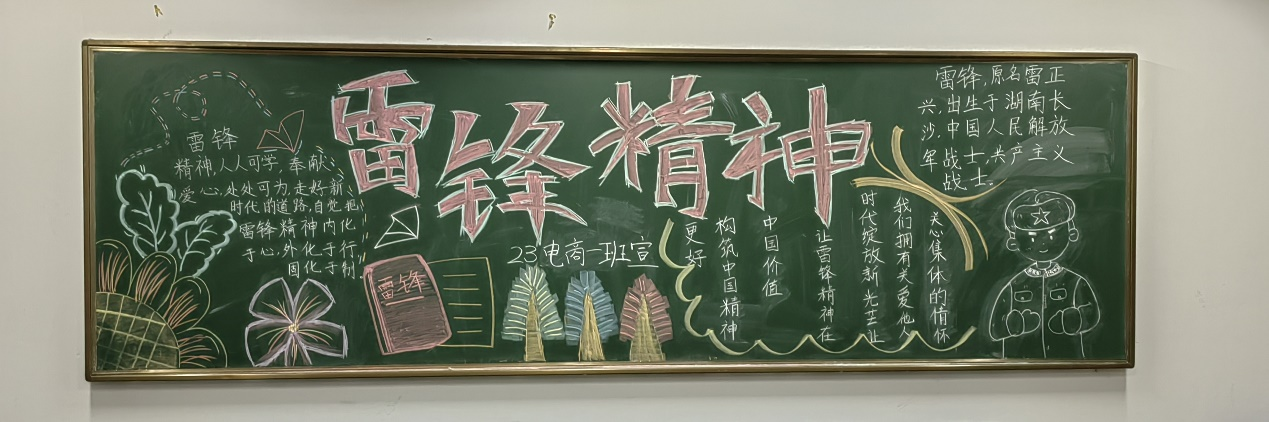 雷锋精神
雷锋
精神,人人可学,奉献
爱心,处处可为,走好新
时代的道路,自觉把
雷锋精神内化
于心,外化于行
固化于制
雷锋
23电商一班宣
关心集体的情怀
我们拥有关爱他人
时代绽放新光芒让
让雷锋精神在
中国价值
构筑中国精神
更好
雷锋,原名雷正
兴,出生于湖南长
沙,中国人民解放
军战士,共产主义
战士。